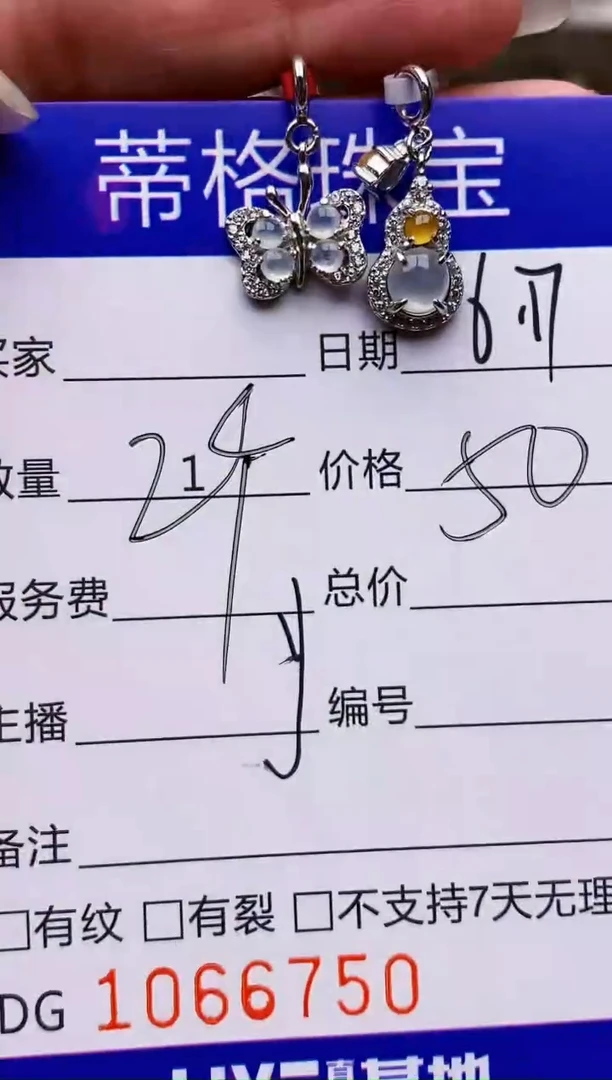 蒂格珠宝
买家 日期 6.17
数量 21个 价格 50
服务费 总价
主播 编号
备注
□有纹 □有裂 □不支持7天无理
DG 1066750
LIVE 真 基地